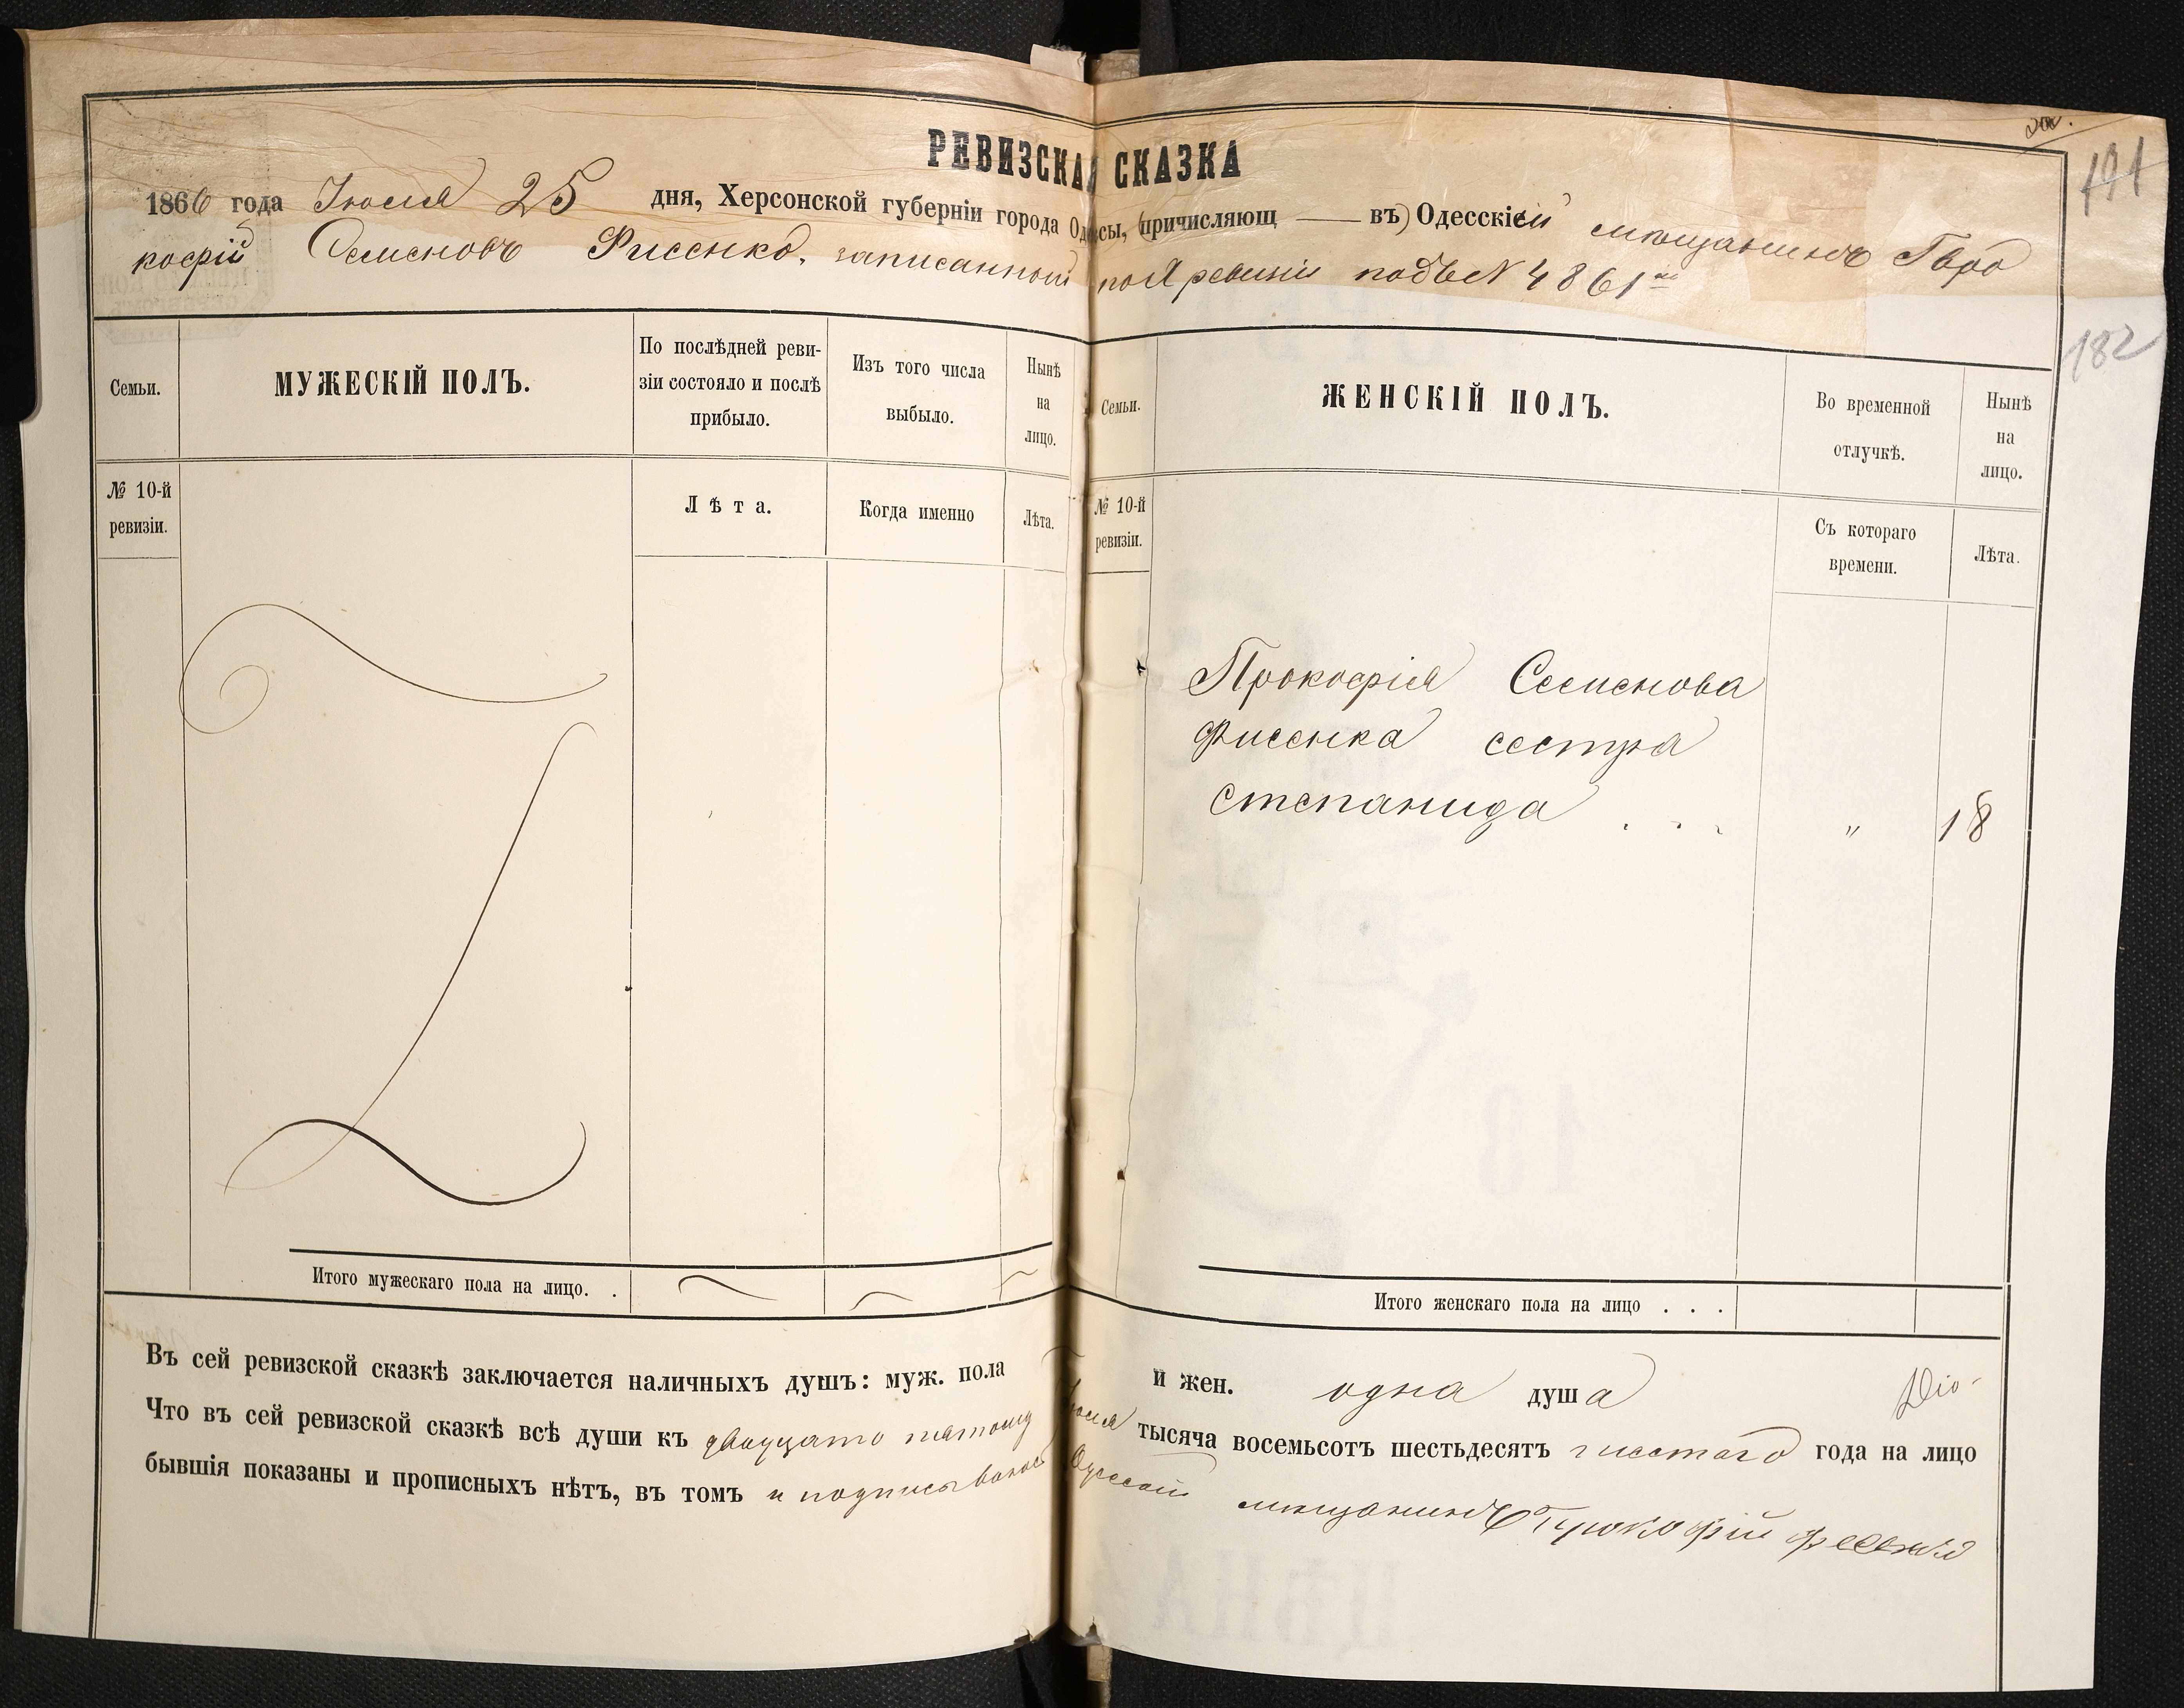 РЕВИЗСКАЯ СКАЗКА
1866 года Июля 25 дня, Херсонской губерніи города Одессы, (причисляющ — въ) Одесскій мѣщанинъ Про
кофій Семеновъ Фисенко, записанный по Х ревизіи подъ № 4861
191
182
Семьи.
МУЖЕСКІЙ ПОЛЪ.
По послѣдней реви-
зіи состояло и послѣ
прибыло.
Изъ того числа
выбыло.
Нынѣ
на
лицо.
Семьи.
ЖЕНСКІЙ ПОЛЪ.
Во временной
отлучкѣ.
Нынѣ
на
лицо.
№ 10-й
ревизіи.
Лѣта.
Когда именно
Лѣта.
№ 10-й
ревизіи.
Съ котораго
времени.
Лѣта.
Прокофія Семенова
Фисенка сестра
Степанида . . . " 18
Итого мужескаго пола на лицо. .
Итого женскаго пола на лицо . . .
Въ сей ревизской сказкѣ заключается наличныхъ душъ: муж. пола — и жен. одна душа
Что въ сей ревизской сказкѣ всѣ души къ двадцать пятому Июля тысяча восемьсотъ шестьдесятъ шестаго года на лицо
бывшія показаны и прописныхъ нѣтъ, въ томъ и подписываюсь Одесскій мѣщанинъ Прокофій